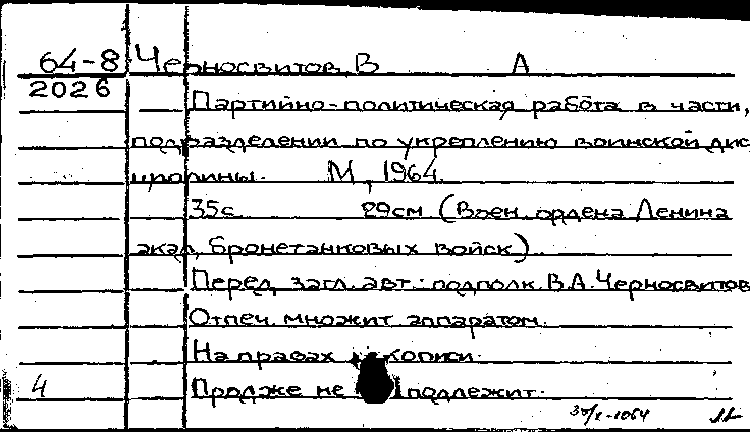 64-8 Черносвитов, В А
2026
Партийно-политическая работа в части,
подразделении по укреплению воинской дис
циплины. М, 1964.
35с. 29см (Воен. ордена Ленина
акад. бронетанковых войск).
Перед загл. авт.: подполк. В.А. Черносвитов
Отпеч. множит. аппаратом.
На правах рукописи.
Продже не подлежит.
4